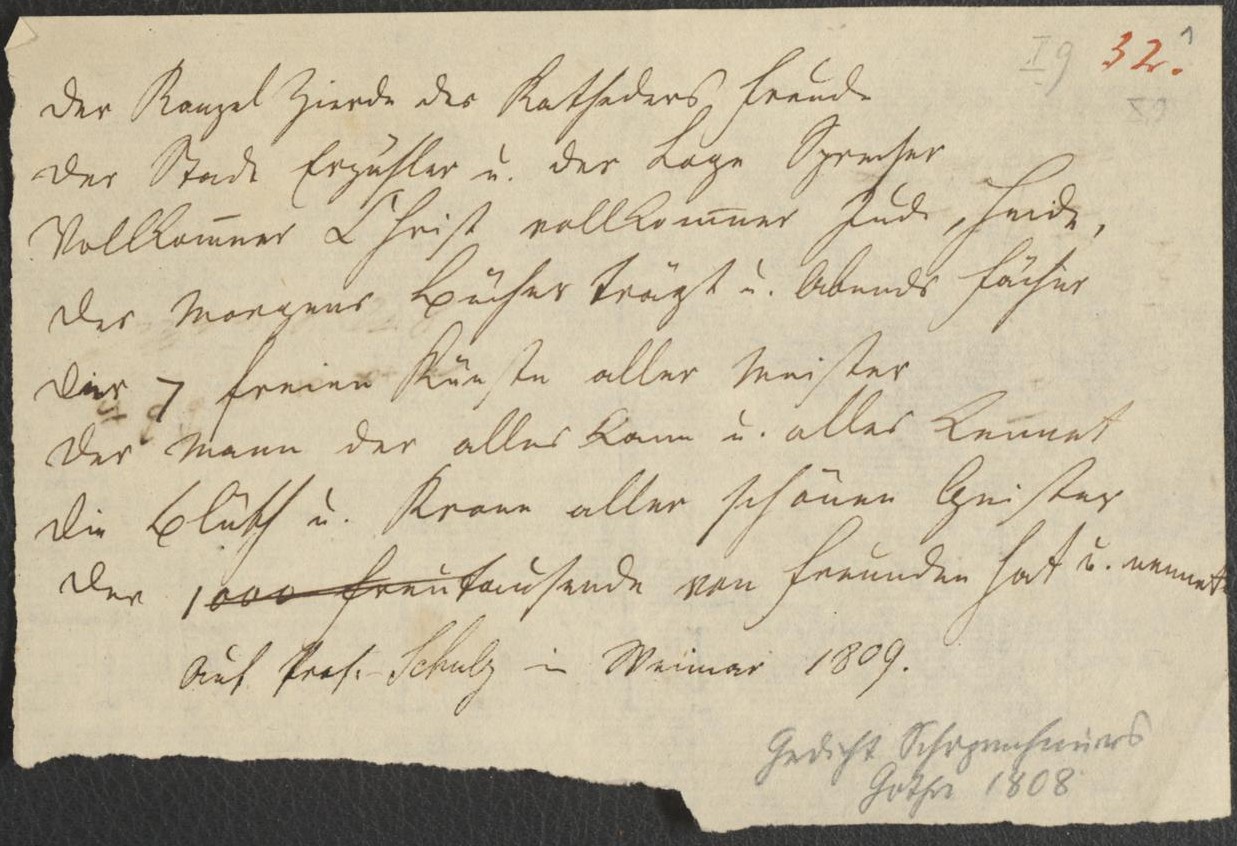 I 9 32. 1
X9
Der Kanzel Zierde des Katheders Freude
Der Stadt Erzähler u. der Loge Sprecher
Vollkom̅ner Christ vollkom̅ner Jude, Heide,
Der Morgens Bücher trägt u. Abends Fächer
Der 7 freien Künste aller Meister
Der Mann der alles kann u. alles kennet
Die Blüth u. Krone aller schönen Geister
Der 1000 Freu tausende von Freunden hat u. nennet
Auf Prof. Schulz in Weimar 1809.
Gedicht Schopenhauers
Gotha 1808